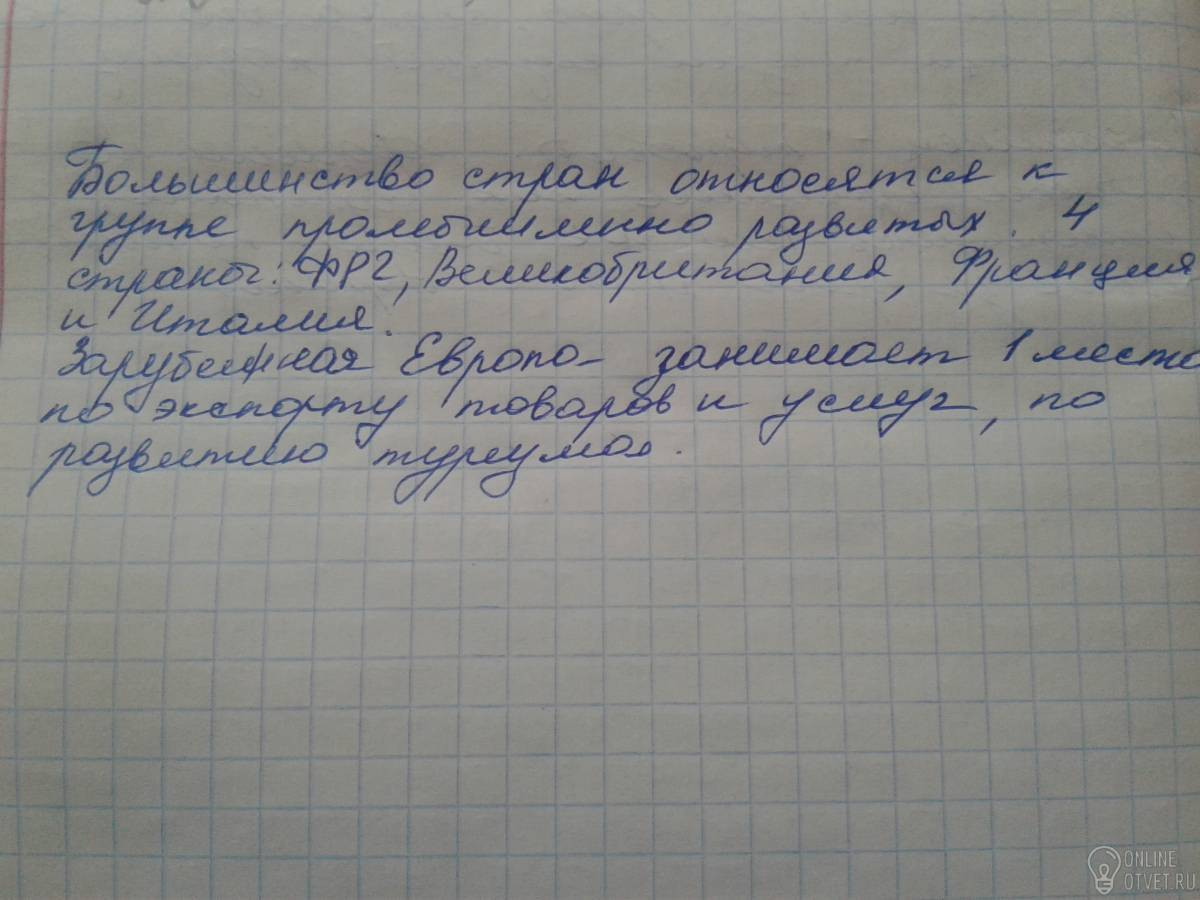 Большинство стран относятся к
группе промышленно развитых. 4
страны: ФРГ, Великобритания, Франция
и Италия.
Зарубежная Европа занимает 1 место
по экспорту товаров и услуг, по
развитию туризма.
ONLINE
OTVET.RU